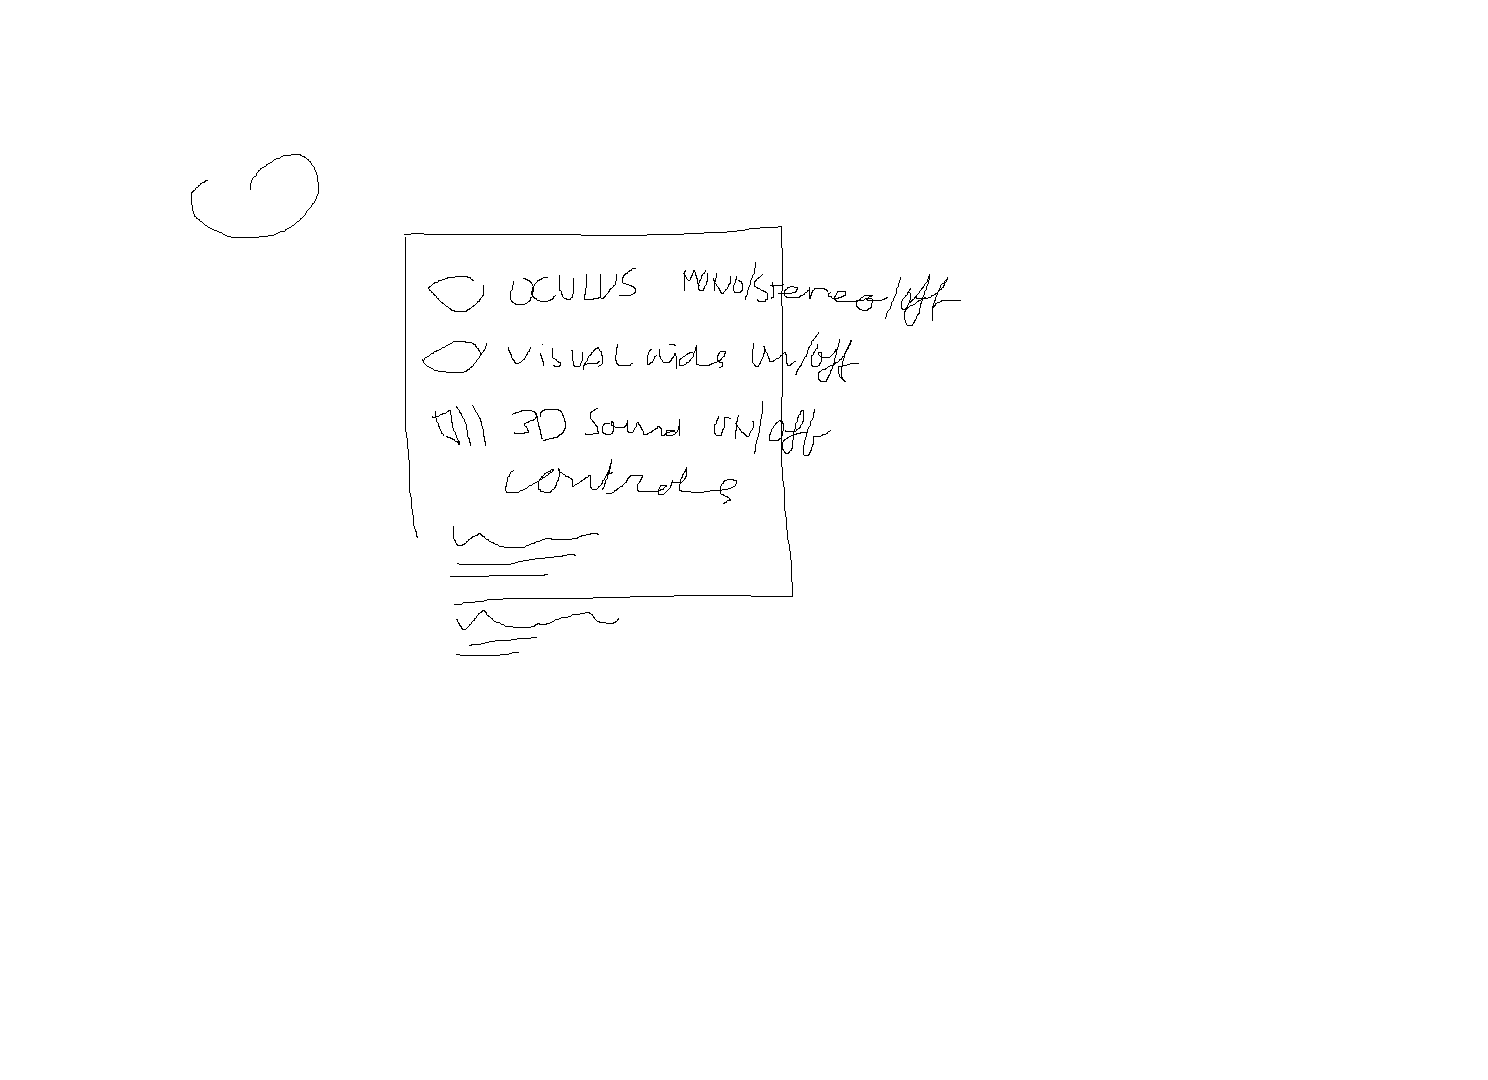 OCULUS MONO/stereo/off
VISUAL aids on/off
3D Sound ON/off
controls